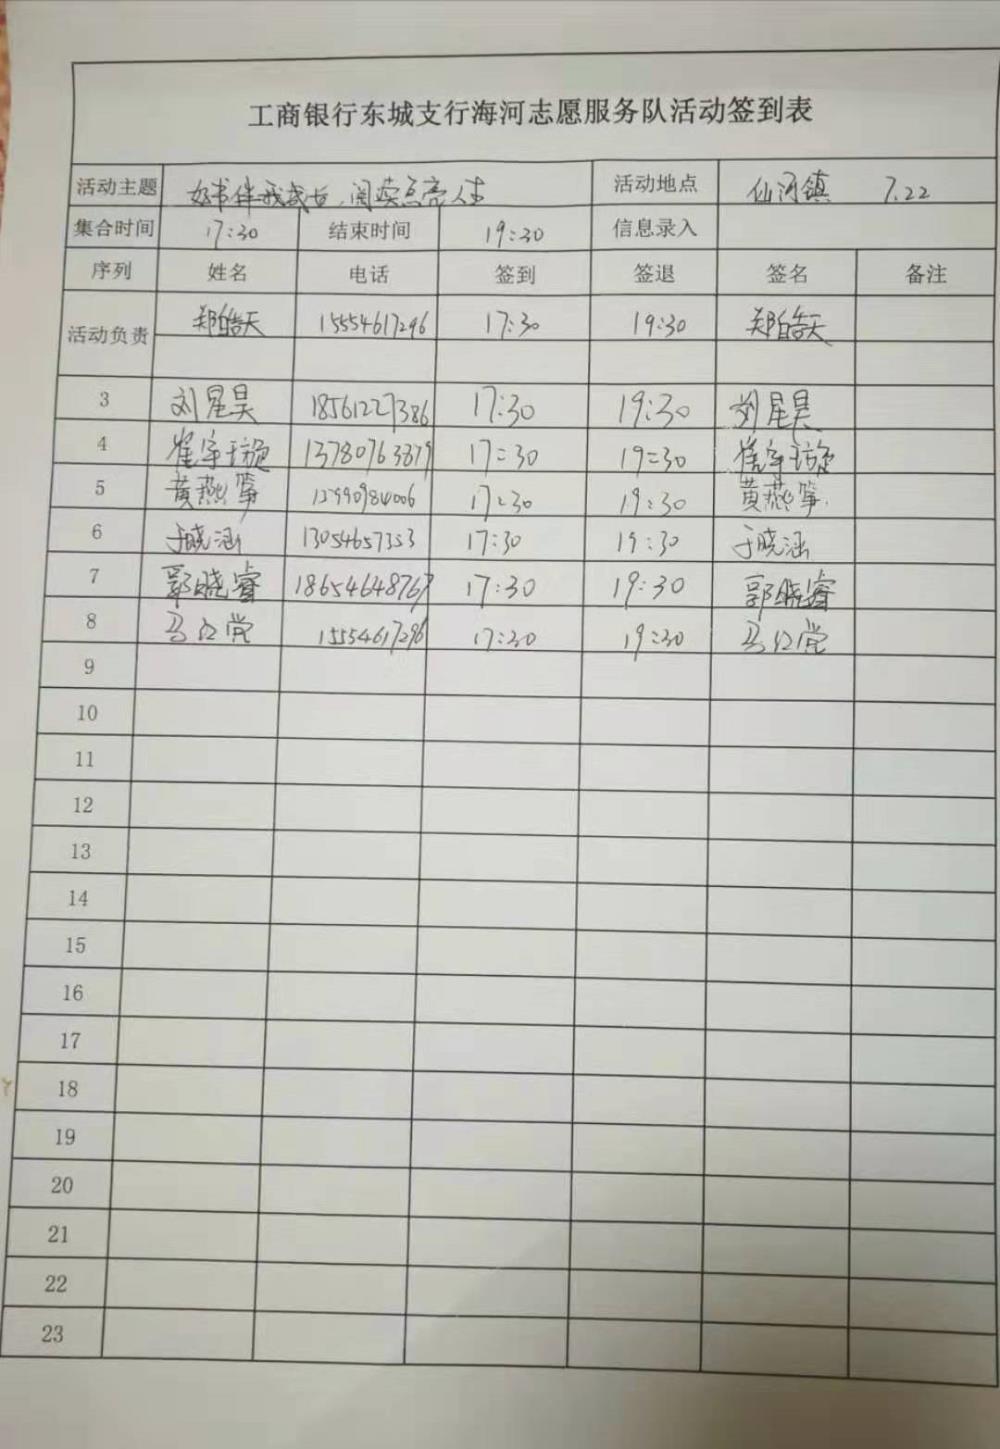 工商银行东城支行海河志愿服务队活动签到表
活动主题 好书伴我成长,阅读点亮人生 活动地点 仙河镇 7.22
集合时间 17:30 结束时间 19:30 信息录入
序列 姓名 电话 签到 签退 签名 备注
活动负责 郑皓天 15554617296 17:30 19:30 郑皓天
3 刘星昊 18561227386 17:30 19:30 刘星昊
4 崔宇璇 13780763879 17:30 19:30 崔宇璇
5 黄燕筝 17:30 19:30 黄燕筝
6 于晓涵 13054657353 17:30 19:30 于晓涵
7 郭晓睿 18654648767 17:30 19:30 郭晓睿
8 马红党 15554617296 17:30 19:30 马红党
9
10
11
12
13
14
15
16
17
18
19
20
21
22
23